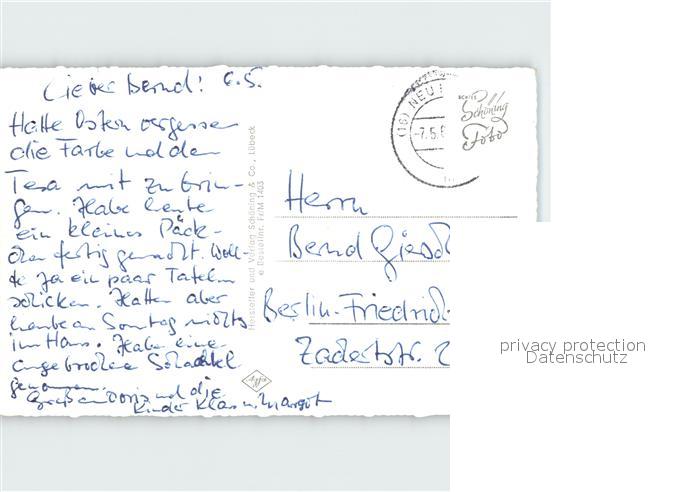 Lieber Bernd! 6.5.
Hatte Ostern vergessen
die Farbe und den
Tesa mit zu brin-
gen. Habe heute
ein kleines Päck-
chen fertig gemacht. Woll-
te ja ein paar Tafeln
schicken. Hatten aber
heute am Sonntag nichts
im Haus. Habe eine
angebrochene Schachtel
genommen.
Gruß an Doris und die
Kinder Klaus u. Margot
Hersteller und Verlag Schöning & Co., Lübeck
Bestellnr. Fr/M 1403
Agfa
(16) NEU
-7.5.6
Schöning
Foto
Herrn
Bernd
Berlin-Friedrich
2
privacy protection
Datenschutz